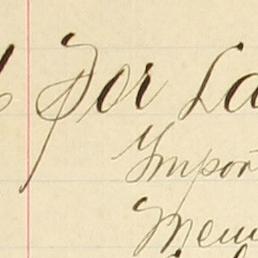 For La
Impor
Mem